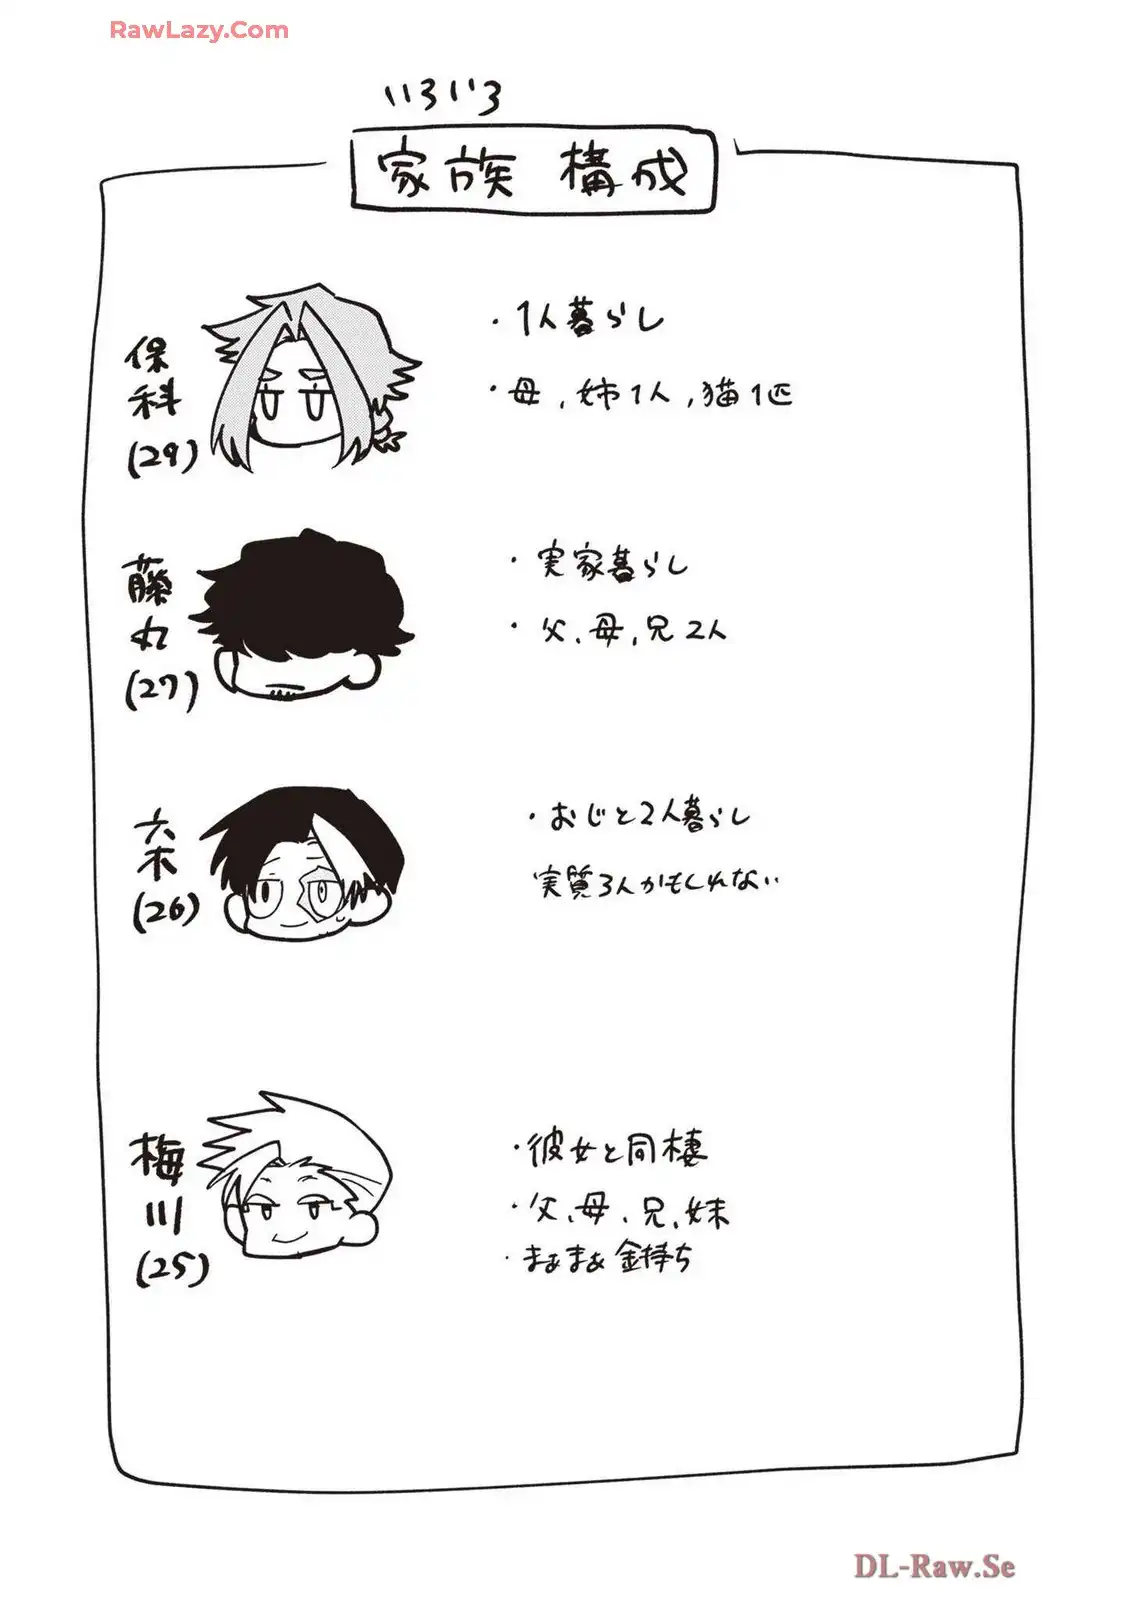 RawLazy.Com
いろいろ
家族 構成
保科
(29)
・1人暮らし
・母、姉1人、猫1匹
藤丸
(27)
・実家暮らし
・父、母、兄2人
六木
(26)
・おじと2人暮らし
実質3人かもしれない
梅川
(25)
・彼女と同棲
・父、母、兄、妹
・まぁまぁ金持ち
DL-Raw.Se